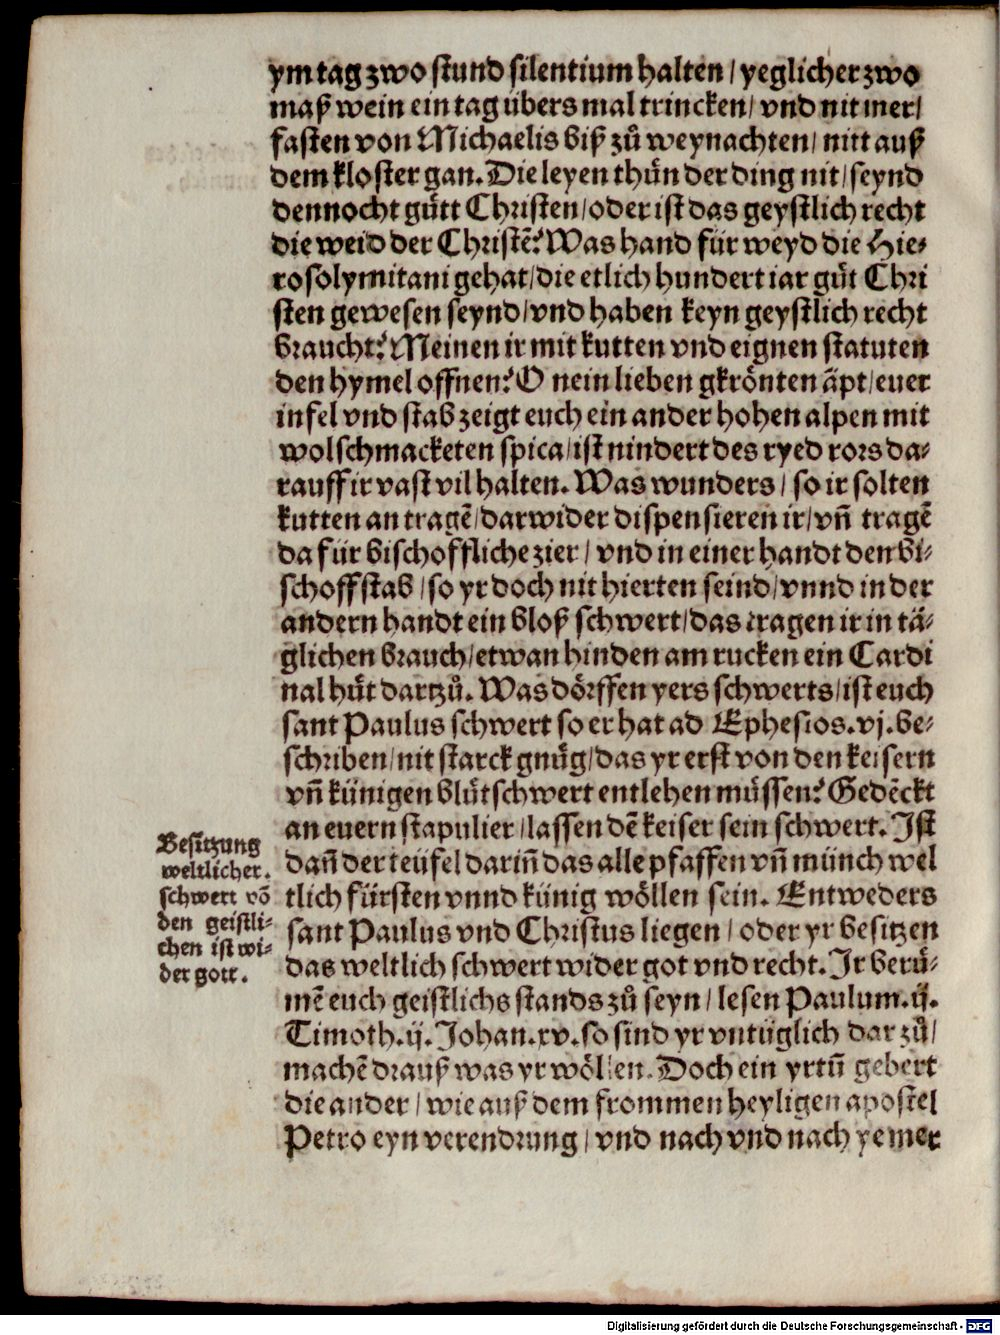 ym tag zwo stund silentium halten / yeglicher zwo
maß wein ein tag übers mal trincken / vnd nit mer /
fasten von Michaelis biß zů weynachten / nitt auß
dem kloster gan. Die leyen thůn der ding nit / seynd
dennocht gůtt Christen / oder ist das geystlich recht
die weid der Christē? Was hand für weyd die Hie⸗
rosolymitani gehat / die etlich hundert iar gůt Chri
sten gewesen seynd / vnd haben keyn geystlich recht
braucht? Meinen ir mit kutten vnd eignen statuten
den hymel offnen? O nein lieben gkrönten äpt / euer
infel vnd stab zeigt euch ein ander hohen alpen mit
wolschmacketen spica / ist nindert des ryed rors da⸗
rauff ir vast vil halten. Was wunders / so ir solten
kutten an tragē / darwider dispensieren ir / vñ tragē
da für bischoffliche zier / vnd in einer handt den bi⸗
schoffstab / so yr doch nit hierten seind / vnnd in der
andern handt ein bloß schwert / das tragen ir in tä⸗
glichen brauch / etwan hinden am rucken ein Cardi
nal hůt dartzů. Was dörffen yers schwerts / ist euch
sant Paulus schwert so er hat ad Ephesios. vj. be⸗
schriben / nit starck gnůg / das yr erst von den keisern
vñ künigen blůtschwert entlehen müssen? Gedēckt
an euern stapulier / lassen dē keiser sein schwert. Ist
dañ der teüfel dariñ das alle pfaffen vñ münch wel
tlich fürsten vnnd künig wöllen sein. Entweders
sant Paulus vnd Christus liegen / oder yr besitzen
das weltlich schwert wider got vnd recht. Ir berů⸗
mē euch geistlichs stands zů seyn / lesen Paulum. ij.
Timoth. ij. Johan. xv. so sind yr vntüglich dar zů /
machē drauß was yr wöllen. Doch ein yrtũ gebert
die ander / wie auß dem frommen heyligen apostel
Petro eyn verendrung / vnd nach vnd nach ye mer
Besitzung
weltlicher.
schwert vō
den geistli⸗
chen ist wi⸗
der gott.
Digitalisierung gefördert durch die Deutsche Forschungsgemeinschaft - DFG